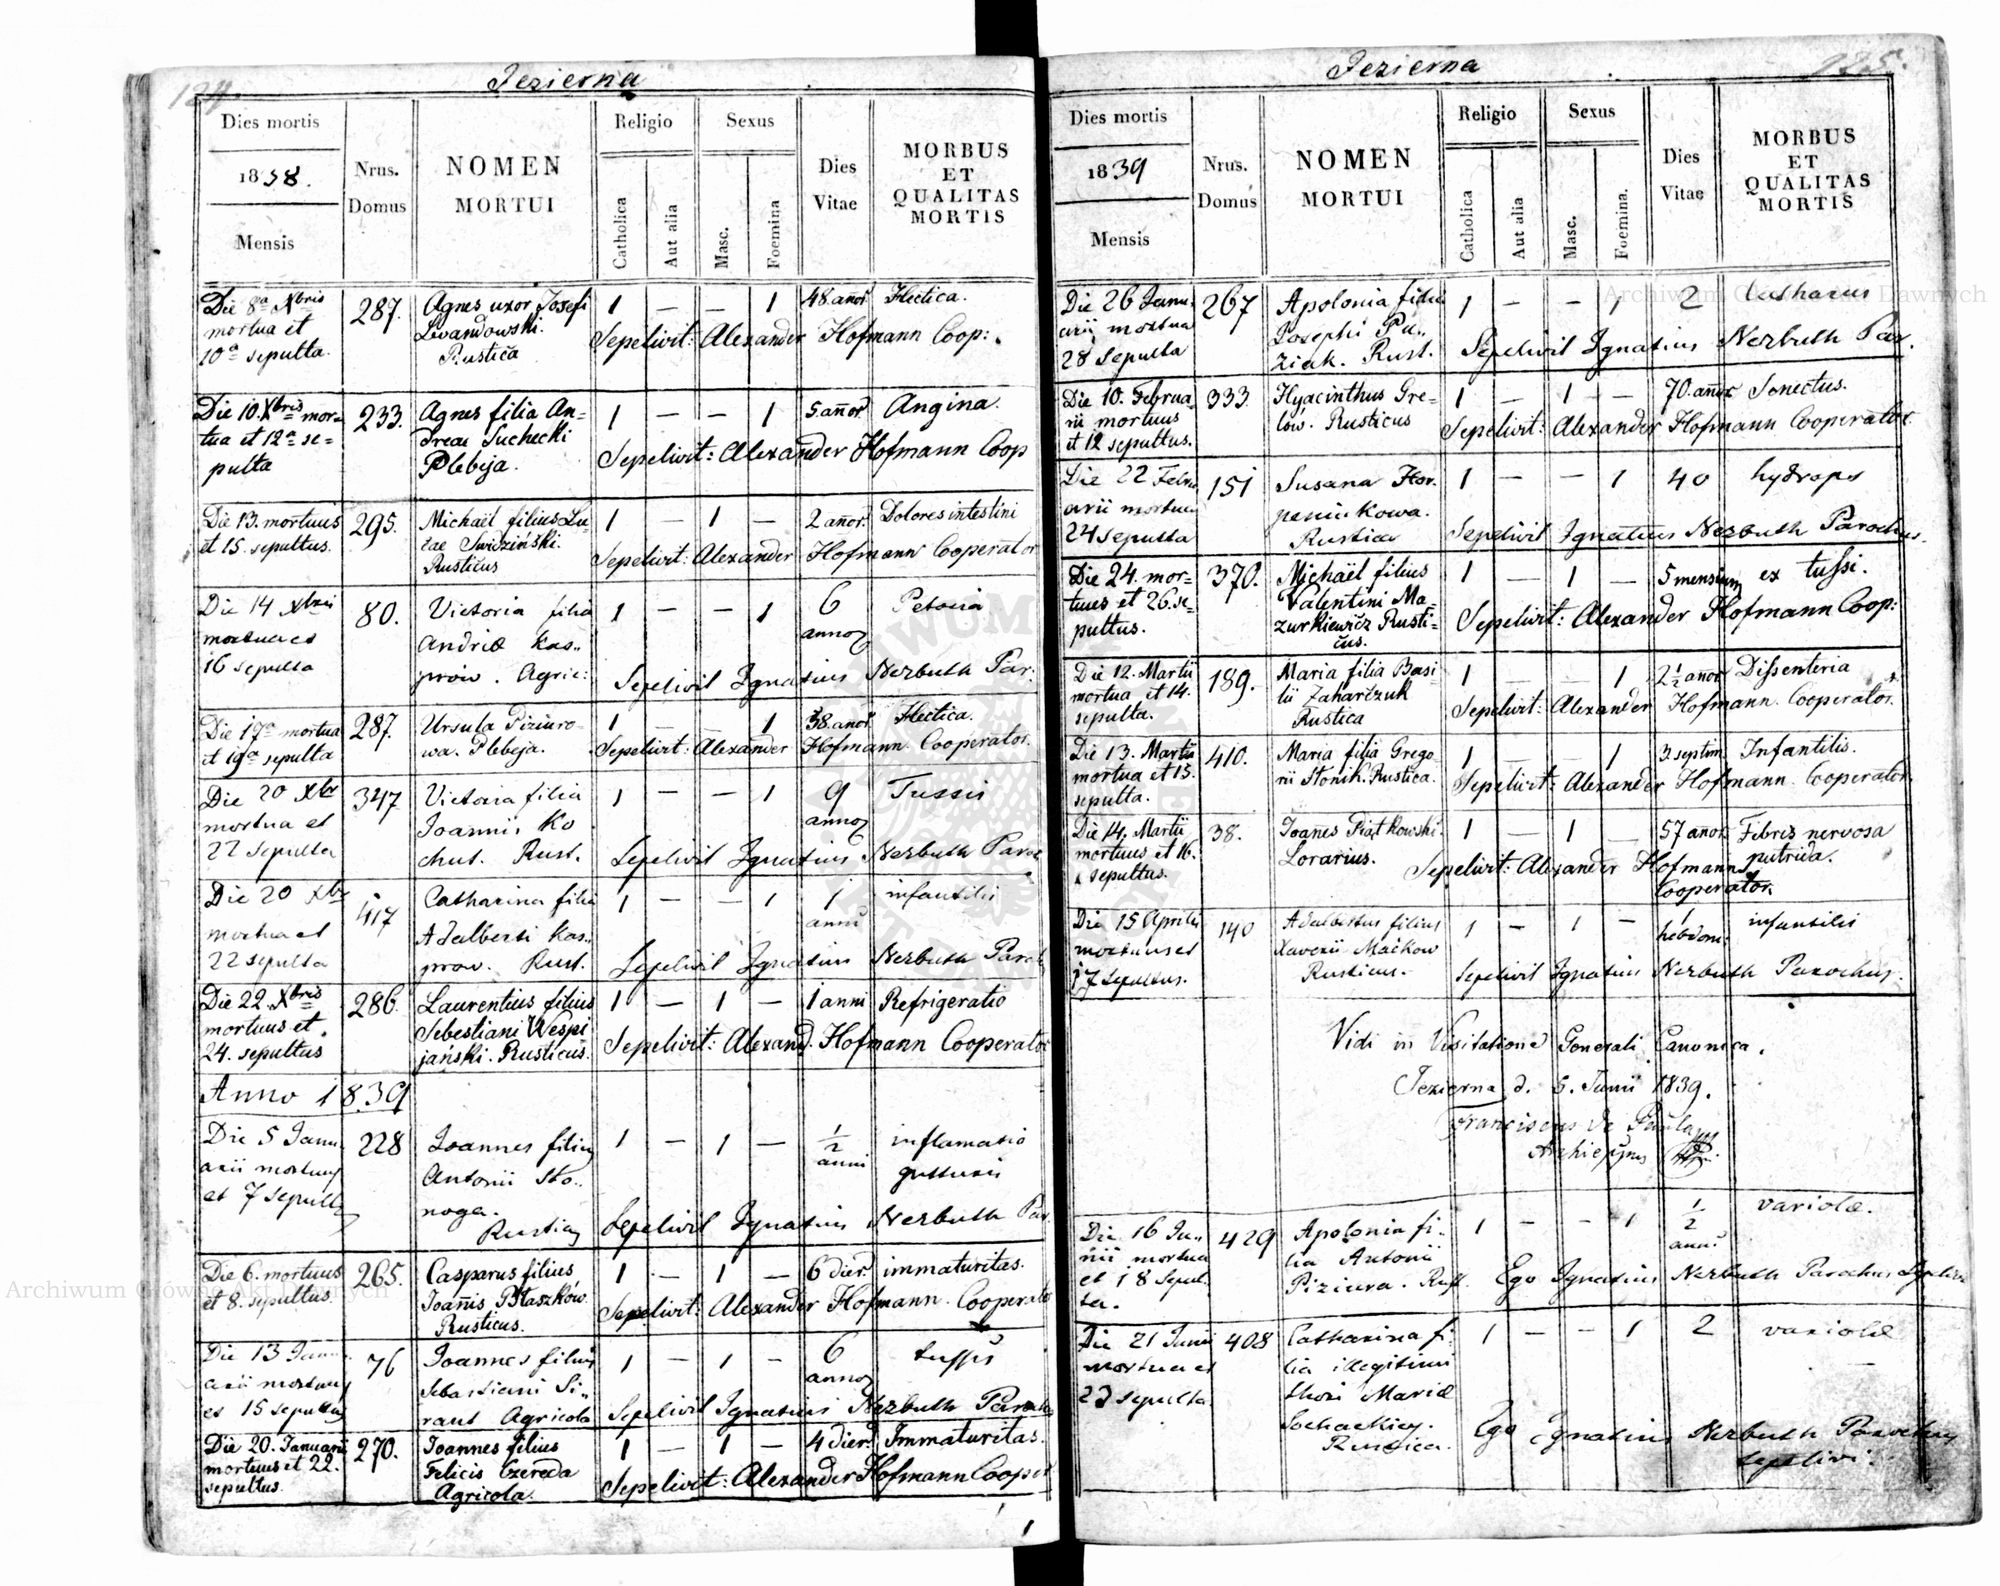 124.
Jezierna
Dies mortis
1838.
Mensis
Nrus.
Domus
NOMEN
MORTUI
Religio
Catholica
Aut alia
Sexus
Masc.
Foemina
Dies
Vitae
MORBUS
ET
QUALITAS
MORTIS
Die 8a Xbris 287. Agnes uxor Josefi 1 — — 1 48 añor Hectica.
mortua et Lewandowski. Sepelivit: Alexander Hofmann Coop:
10a sepulta. Rustica
Die 10. Xbris mor= 233. Agnes filia An= 1 — — 1 5. añor Angina.
tua et 12a se= dreae Suchecki Sepelivit: Alexander Hofmann Coop
pulta Plebeja.
Die 13. mortuus 295. Michaël filius Lu 1 — 1 — 2 añor. Dolores intestini
et 15. sepultus. cae Swidziński. Sepelivit: Alexander Hofmann Cooperator
Rusticus
Die 14 Xbris 80. Victoria filia 1 — — 1 6
mortua et Andriae Kas.. anno
16 sepulta prow. Agric: Sepelivit Ignatius Nerbuth Par:
Die 17a mortua 287. Ursula Piziuro- 1 — — 1 38. añor Hectica.
et 19a sepulta wa. Plebeja. Sepelivit: Alexander Hofmann. Cooperator.
Die 20 Xbr 347 Victoria filia 1 — — 1 9 Tussis
mortua et Joannis Ko anno
22 sepulta chut. Rust. Sepelivit Ignatius Nerbuth Paroc
Die 20 Xbr 417 Catharina filia 1 — — 1 1 infantilis
mortua et Adalberti Kas.. anni
22 sepulta prow. Rust. Sepelivit Ignatius Nerbuth Paroch
Die 22. Xbris 286. Laurentius filius 1 — 1 — 1 anni Refrigeratio
mortuus et Sebestiani Wespi Sepelivit: Alexand. Hofmann Cooperator
24. sepultus jański. Rusticus.
Anno 1839
Die 5 Janu 228 Joannes filius 1 — 1 — 1/2 inflamatio
arii mortuus Antonii Sto.. anni gutturis
et 7 sepult noga.
Rustic Sepelivit Ignatius Nerbuth Par.
Die 6. mortuus 265. Casparus filius 1 — 1 — 6 dier. immaturitas.
et 8. sepultus. Joañis Ptaszków. Sepelivit: Alexander Hofmann. Cooperator
Rusticus.
Die 13 Janu 76 Joannes filius 1 — 1 — 6 tussis
arii mortuus Sebastiani Si.. anno
et 15 sepultus rant Agricola Sepelivit Ignatius Nerbuth Paroch
Die 20. Januarii 270. Joannes filius 1 — 1 — 4 dier. Immaturitas.
mortuus et 22. Felicis Czereda Sepelivit: Alexander Hofmann Cooper
sepultus. Agricola.
125.
Jezierna
Dies mortis
1839
Mensis
Nrus.
Domus
NOMEN
MORTUI
Religio
Catholica
Aut alia
Sexus
Masc.
Foemina.
Dies
Vitae
MORBUS
ET
QUALITAS
MORTIS
Die 26 Janu. 267 Apolonia filia 1 — — 1 2 Catharus
arii mortua Josephi Pu..
28 sepulta ziak. Rust. Sepelivit Ignatius Nerbuth Par.
Die 10. Februa 333. Hyacinthus Gre= 1 — 1 — 70. añor Senectus.
rii mortuus lów. Rusticus Sepelivit: Alexander Hofmann Cooperator.
et 12 sepultus.
Die 22 Febru 151 Susana Hor. 1 — — 1 40 hydrops
arii mortua kowa.
24 sepulta Rustica Sepelivit Ignatius Nerbuth Parochus.
Die 24. mor= 370. Michaël filius 1 — 1 — 5 mensium ex tussi.
tuus et 26. se= Valentini Ma= Sepelivit: Alexander Hofmann Coop:
pultus. zurkiewicz Rusti=
cus.
Die 12. Martii 189. Maria filia Basi= 1 — — 1 2 1/2 añor Dissenteria
mortua et 14. lii Zaharczuk Sepelivit: Alexander Hofmann. Cooperator.
sepulta. Rustica
Die 13. Martii 410. Maria filia Grego 1 — — 1 3. septim. Infantilis.
mortua et 15. rii Stonik. Rustica. Sepelivit: Alexander Hofmann. Cooperator.
sepulta.
Die 14. Martii 38. Joañes Piątkowski. 1 — 1 — 57 añor. Febres nervosa
mortuus et 16. Lorarius. putrida.
sepultus. Sepelivit: Alexander Hofmann
Cooperator.
Die 15 Aprilis 140 Adalbertus filius 1 — 1 — 1 infantilis
mortuus et Xaverii Maćkow hebdom:
17 sepultus. Rusticus. Sepelivit Ignatius Nerbuth Parochus.
Vidi in Visitatione Generali Canonica.
Jezierna d. 5. Junii 1839.
Franciscus de Paula
Archieppus
Die 16 Ju.. 429 Apolonia fi- 1 — — 1 1/2 variolae.
nii mortua lia Antonii anni
et 18 sepul. Piziura. Rust. Ego Ignatius Nerbuth Parochus Sepelivi
ta.
Die 21 Junii 408 Catharina fi- 1 — — 1 2 variolae
mortua et lia illegitimi
23 sepulta thori Mariae
Rustica. Ego Ignatius Nerbuth Parochus
sepelivi.
Archiwum Główne Akt Dawnych
Archiwum Główne Akt Dawnych